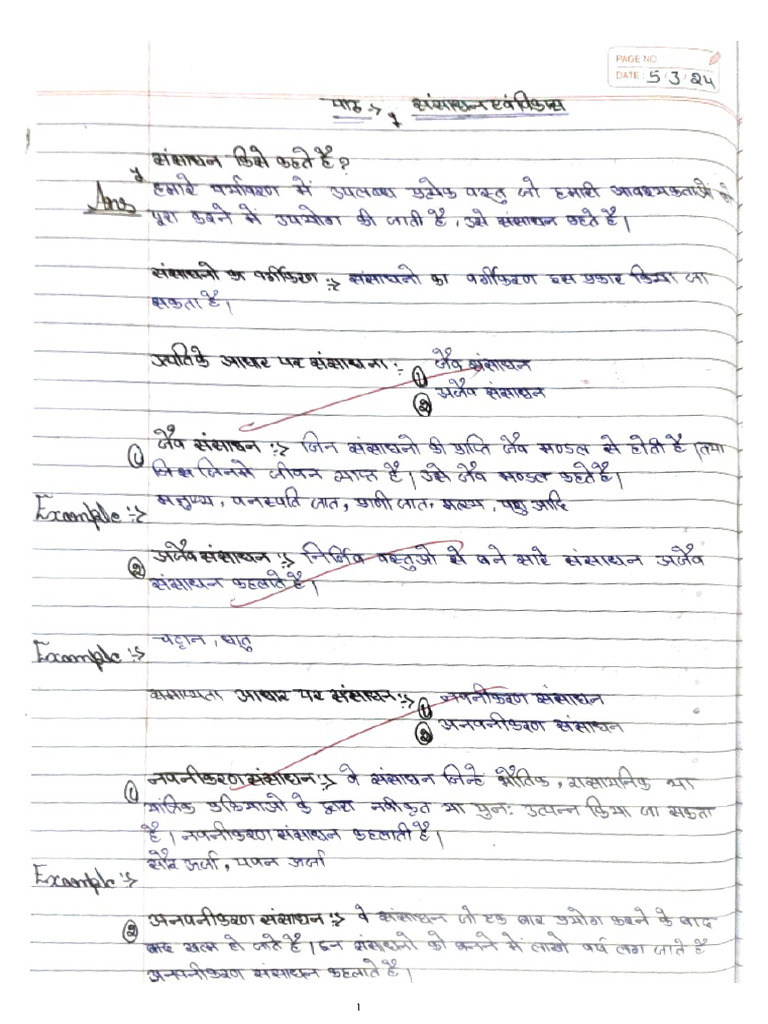 PAGE NO.
DATE: 5/3/24
पाठ :-> 1 संसाधन एवं विकास
1 संसाधन किसे कहते है?
Ans हमारे पर्यावरण में उपलब्ध प्रत्येक वस्तु जो हमारी आवश्यकताओं को
पूरा करने में उपयोग की जाती है, उसे संसाधन कहते है।
संसाधनो का वर्गीकरण :-> संसाधनो का वर्गीकरण इस प्रकार किया जा
सकता है।
उत्पतिके आधार पर संसाधन :- ① जैव संसाधन
② अजैव संसाधन
① जैव संसाधन :-> जिन संसाधनो की प्राप्ति जैव मण्डल से होती है। तथा
जिस जिनमे जीवन व्याप्त है। उसे जैव मण्डल कहते है।
Example :-> मनुष्य, वनस्पति जात, प्राणी जात, मत्स्य, पशु आदि
② अजैव संसाधन :-> निर्जिव वस्तुओ से बने सारे संसाधन अजैव
संसाधन कहलाते है।
Example :-> चट्टान, धातु
समाप्यता आधार पर संसाधन :-> ① नवनीकरण संसाधन
② अनवनीकरण संसाधन
① नवनीकरण संसाधन :-> वे संसाधन जिन्हे भौतिक, रासायनिक या
यांत्रिक प्रक्रियाओ के द्वारा नवीकृत या पुनः उत्पन्न किया जा सकता
है। नवनीकरण संसाधन कहलाती है।
Example :-> सौर उर्जा, पवन उर्जा
② अनवनीकरण संसाधन :-> वे संसाधन जो एक बार प्रयोग करने के बाद
बाद खत्म हो जाते है। इन संसाधनो को बनने में लाखो वर्ष लग जाते है
अनवनीकरण संसाधन कहलाते है।
1